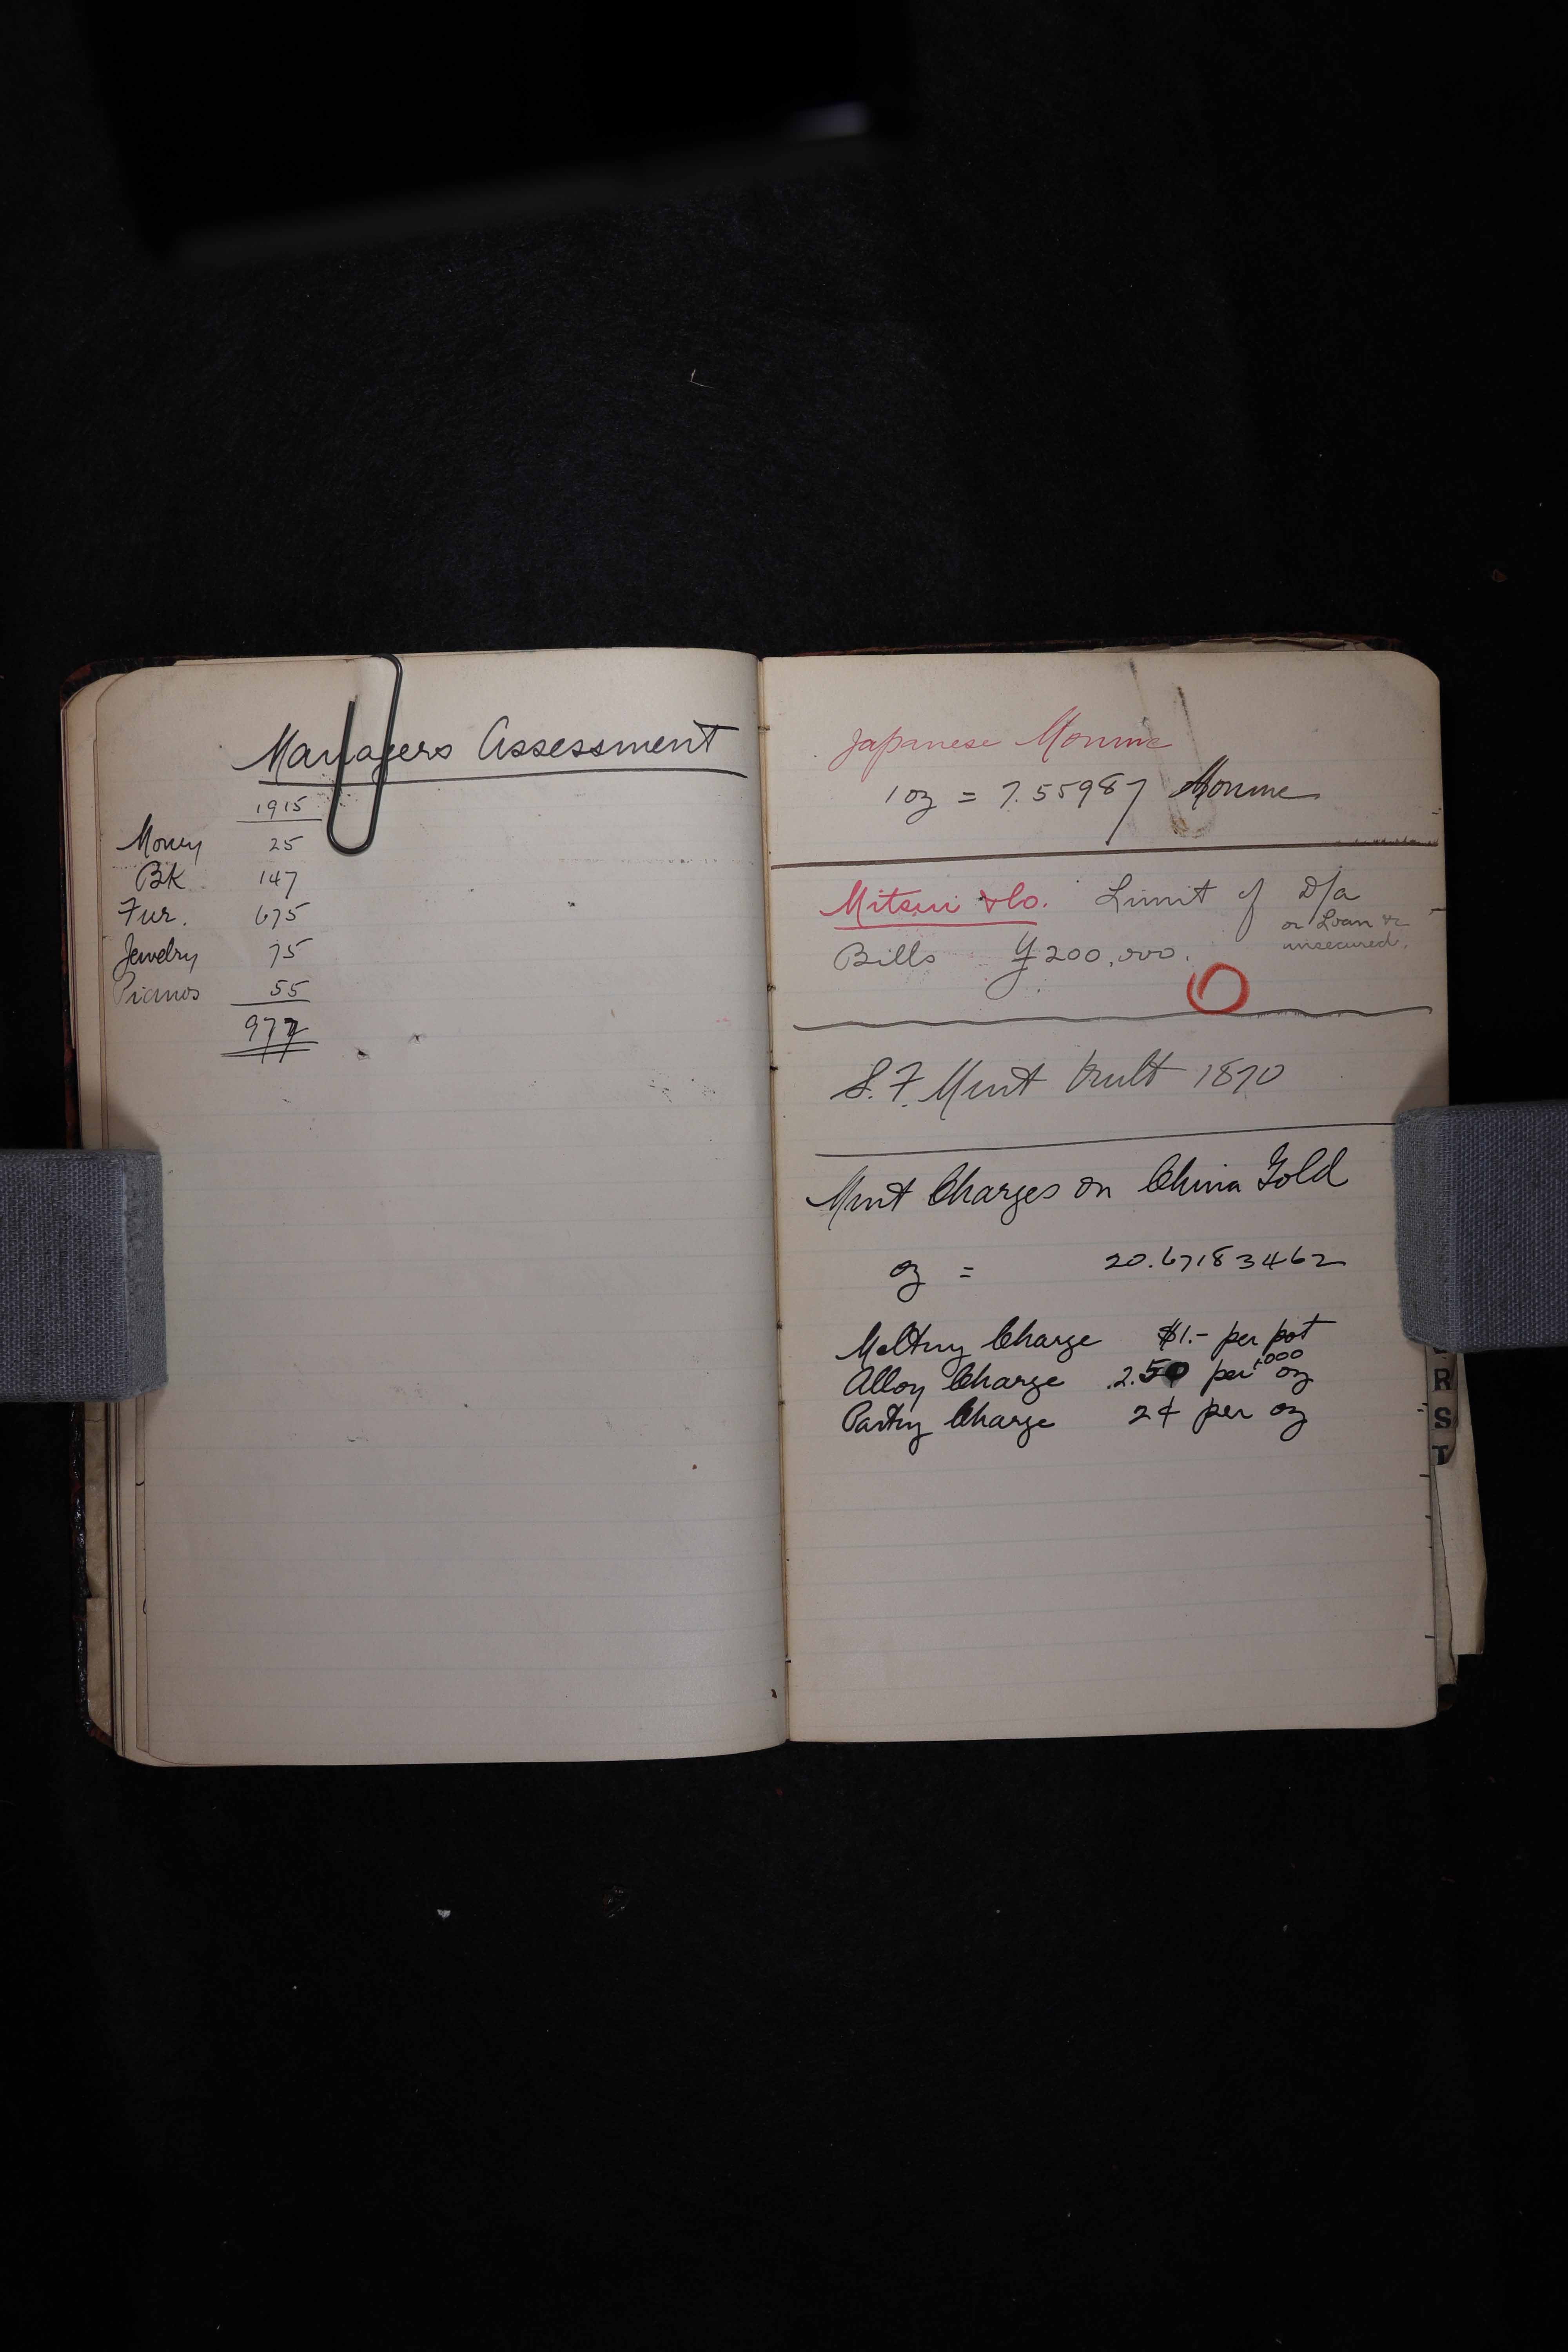 Managers Assessment
1915
Money 25
BK 147
Fur. 675
Jewelry 75
Pianos 55
977
Japanese Momme
1 oz = 7.55987 Momme
Mitsui & Co. Limit of D/a
or Loan &c
unsecured.
Bills ¥200,000.
S. F. Mint built 1870
Mint Charges on China Gold
oz = 20.67183462
Melting Charge $1.- per pot
Alloy Charge 2.50 per 1000 oz
Parting Charge 2¢ per oz
R
S
T